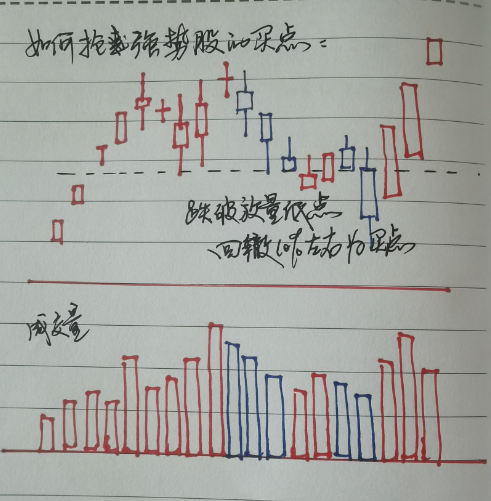 如何抢到强势股的买点：
跌破放量低点
回撤10%左右为买点
成交量